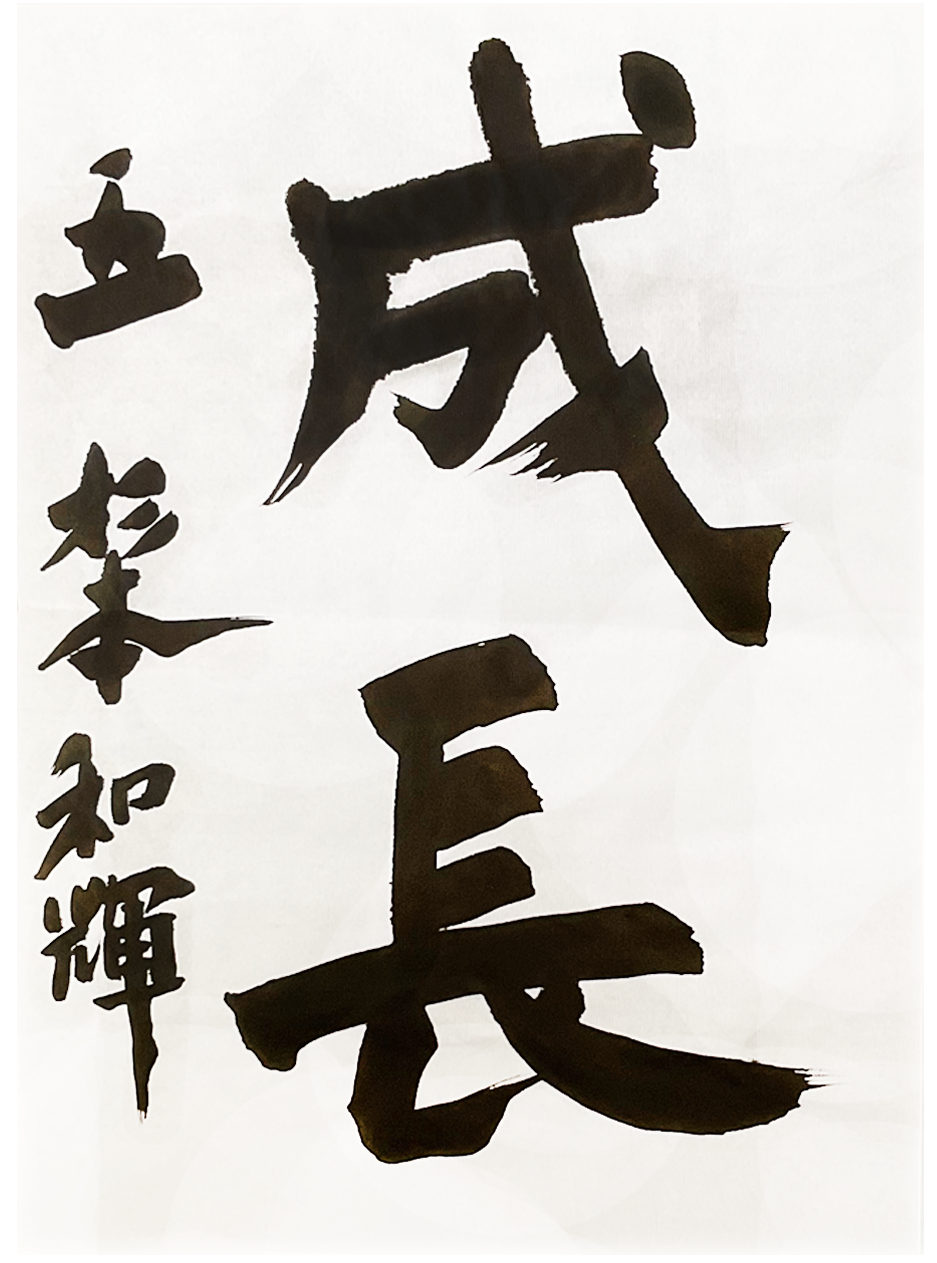 成長
五 杉本和輝